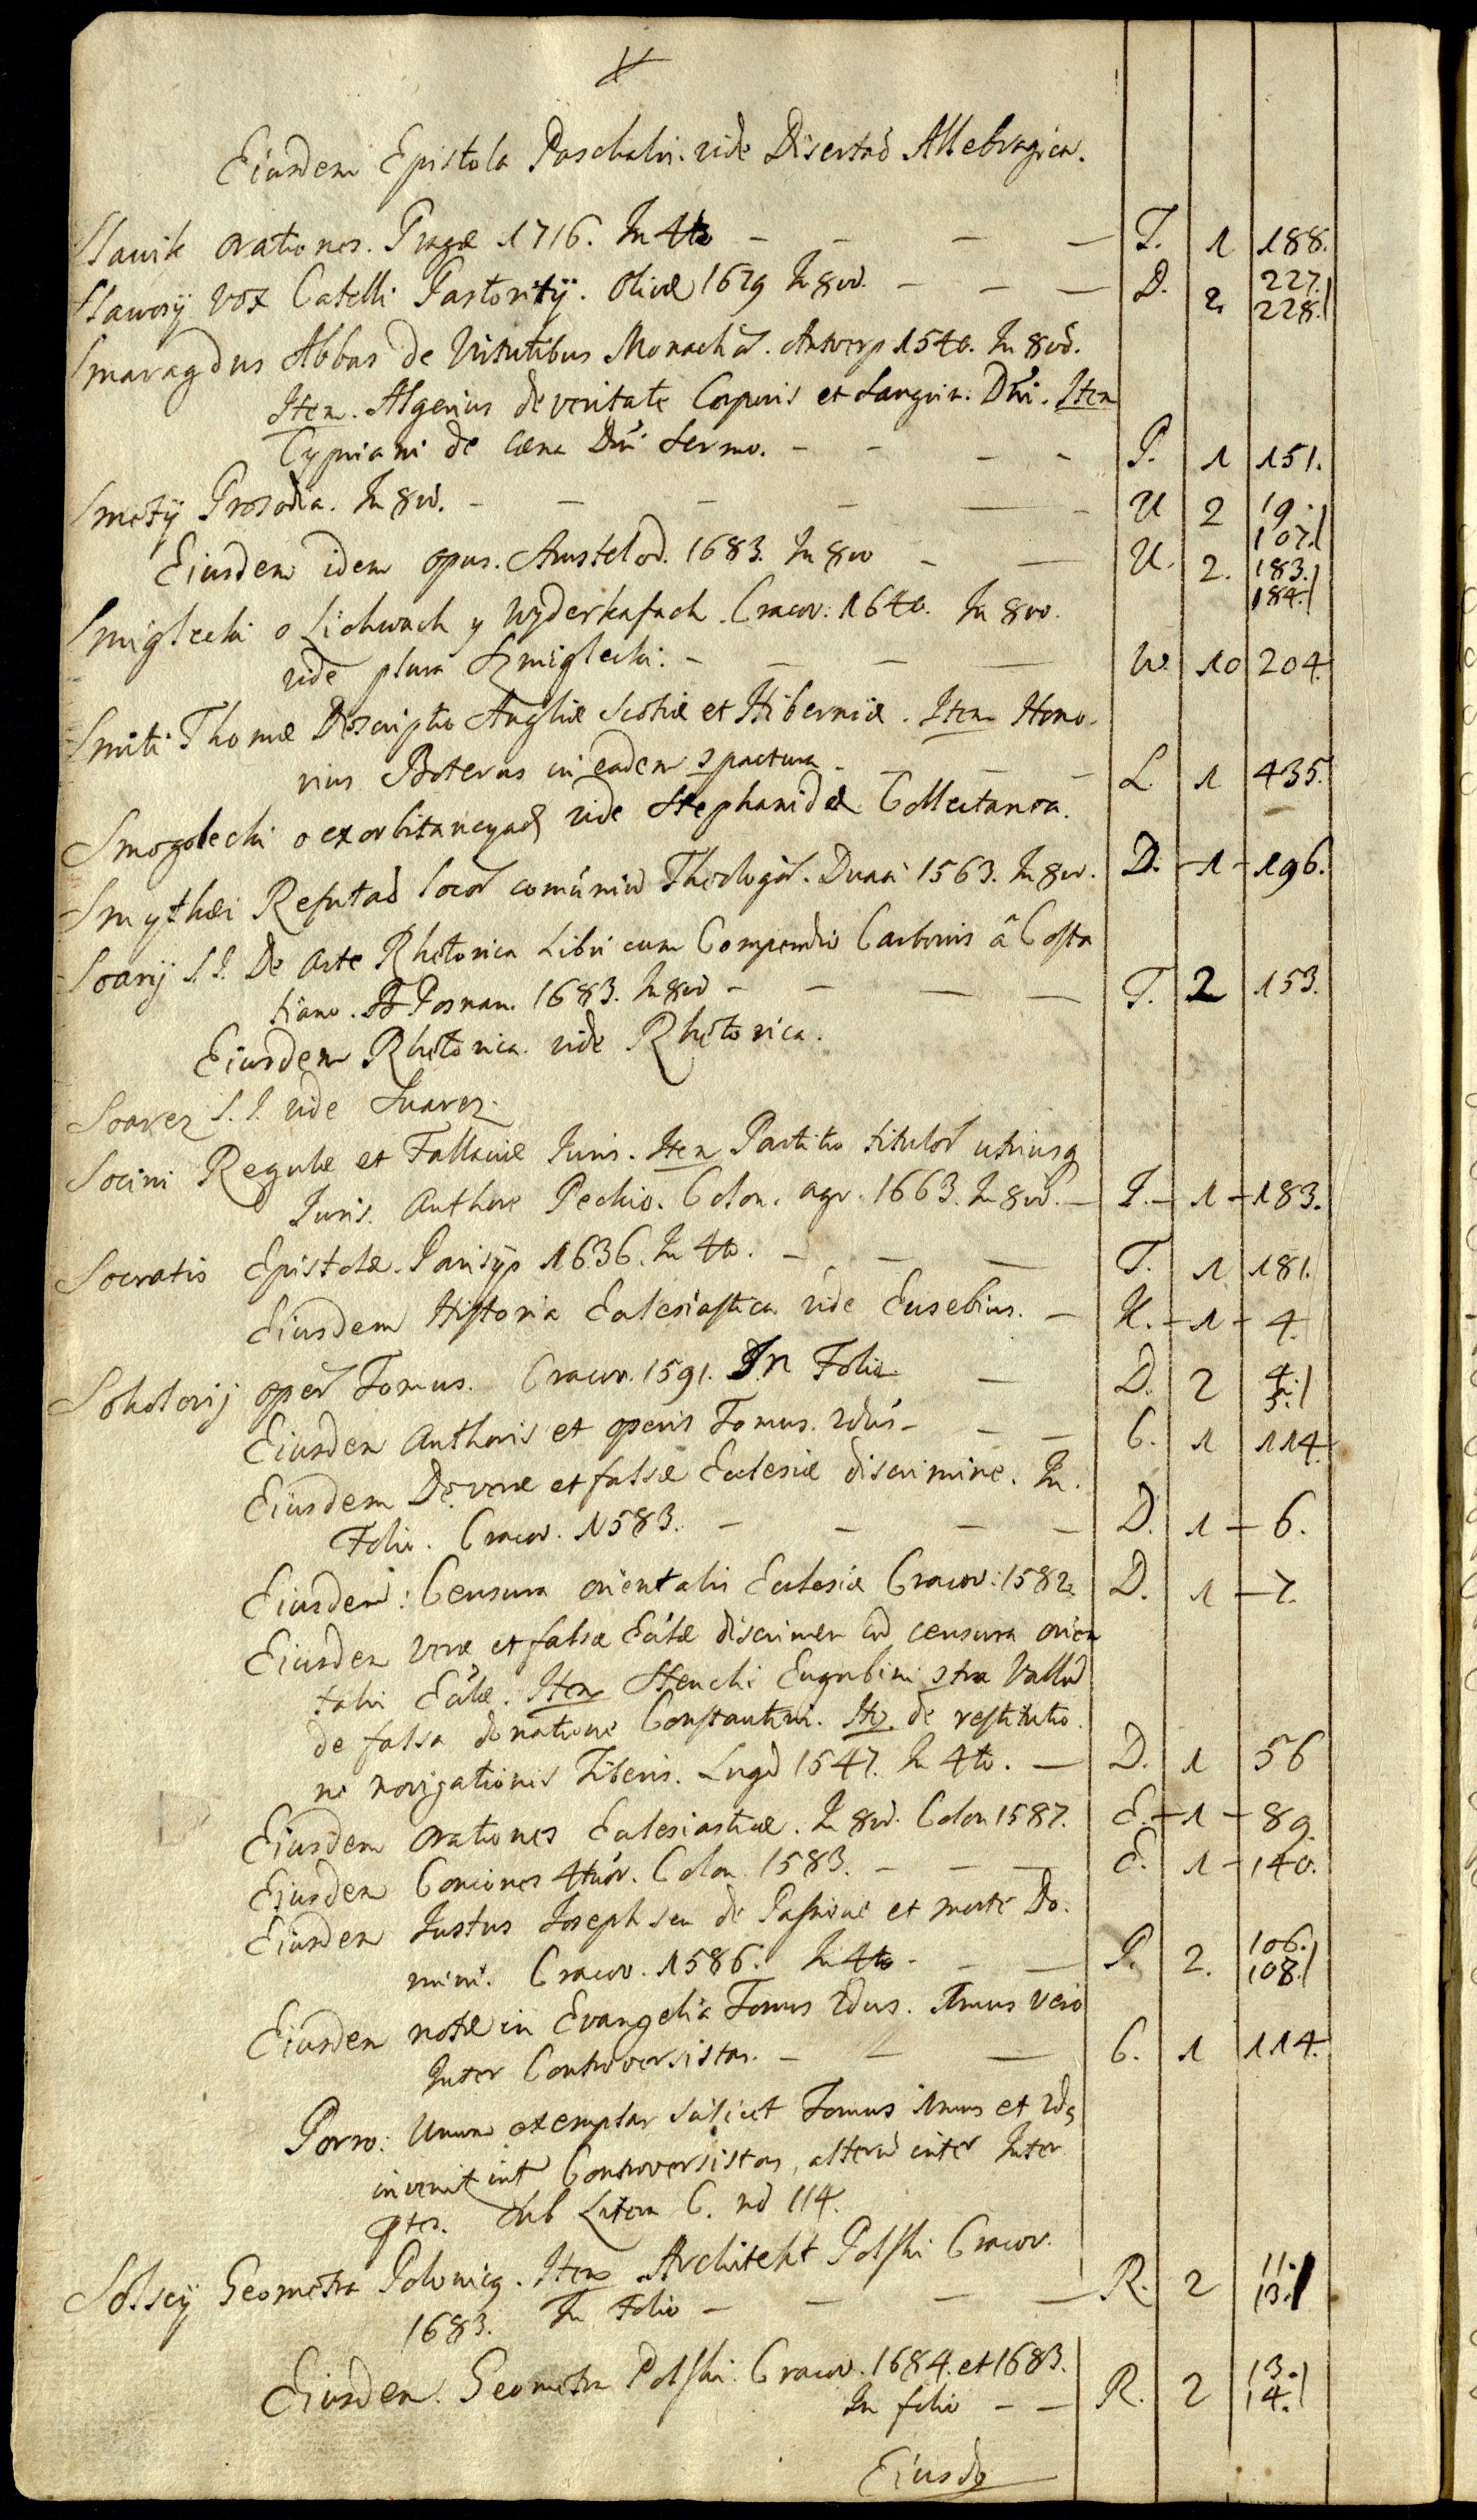 Eiusdem Epistola Paschalis. vide Disertaõ Allebragica.
Slawik orationes. Pragæ 1716. In 4to — — — — T. 1 188.
Slawosÿ vox Catelli Pastoritÿ. Olivæ 1679 In 8vo. — — — D. 2 227. 228.
Smaragdus Abbas de Virtutibus Monachor. Antverp 1540. In 8vo.
Item. Algerius de veritate Corporis et Sangvin. Dni. Item
Cypriani de cæna Dni Sermo. — — — — P. 1 151.
Smetÿ Prosodia. In 8vo. — — — — — — U 2 19. 107.
Eiusdem idem opus. Amstelod. 1683. In 8vo — — U. 2. 183. 184.
Smiglecki o Lichwach y Wyderkafach. Cracov: 1640. In 8vo.
vide plura Szmiglecki: — — — — W. 10 204.
Smiti Thomæ Descriptio Angliæ Scotiæ et Hiberniæ. Item Hono-
rius Boterus in eadem 2 pactura — — — — L. 1 435.
Smogolecki o exorbitancyach vide Stephanidæ Collectanea.
Smythæi Refutaõ locor comuniũ Theologic. Duaci 1563. In 8vo. D. — 1 — 196.
Soarij S.J. De Arte Rhetorica Libri cum Compendio Carbonis â Costa
tiano. Posnan. 1683. In 8vo — — — — T. 2 153.
Eiusdem Rhetorica. vide Rhetorica.
Soarez S.J. vide Suarez.
Socini Regulæ et Fallaciæ Iuris. Item Partitio titulor utriusq
Iuris. Authore Peckio. Colon. agr. 1663. In 8vo. — I. — 1 — 183.
Socratis Epistolæ. Parisÿs 1636. In 4to. — — — T. 1 181.
Eiusdem Historia Eclesiastica. vide Eusebius. — K. — 1 — 4.
Sokolovij oper Tomus. Cracov. 1591. In Folio — D. 2 4. 5.
Eiusdem Authoris et operis Tomus. 2dus — — — C. 1 114.
Eiusdem De veræ et falsæ Eclesiæ discrimine. In.
Folio. Cracov. 1583. — — — — D. 1 — 6.
Eiusdem: Censura orientalis Eclesiæ Cracov: 1582. D. 1 — 7.
Eiusdem veræ et falsæ Eclæ discrimen cũ censura orien
talis Eclæ. Item Steuchi Eugubini 2tra Vallũ
de falsa donatione Constantini. Ite. de restitutio.
ne navigationis Tiberis. Lugd 1547. In 4to. — D. 1 56
Eiusdem orationes Eclesiasticæ. In 8vo. Colon 1587. E. — 1 — 89.
Eiusdem Conciones 4tuor. Colon 1583. — — — E. 1 — 140.
Eiusdem Iustus Ioseph seu de Passione et morte Do.
mini. Cracov. 1586. In 4to — — — P. 2. 106. 108.
Eiusdem notæ in Evangelia Tomus 2dus. 1mus vero
Inter Controversistas. — — — C. 1 114.
Porro: Unum exemplar scilicet Tomus 1mus et 2dq
invenit int Controversistas, alterũ inter Inter
ptes. Sub Litera C. nõ 114.
Solscÿ Geometra Polonicq. Item Architekt Polski Cracov.
1683. In Folio — — — — R. 2 11. 13.
Eiusdem. Geometra Polski. Cracov. 1684. et 1683.
In folio — — R. 2 13. 14.
Eiusde